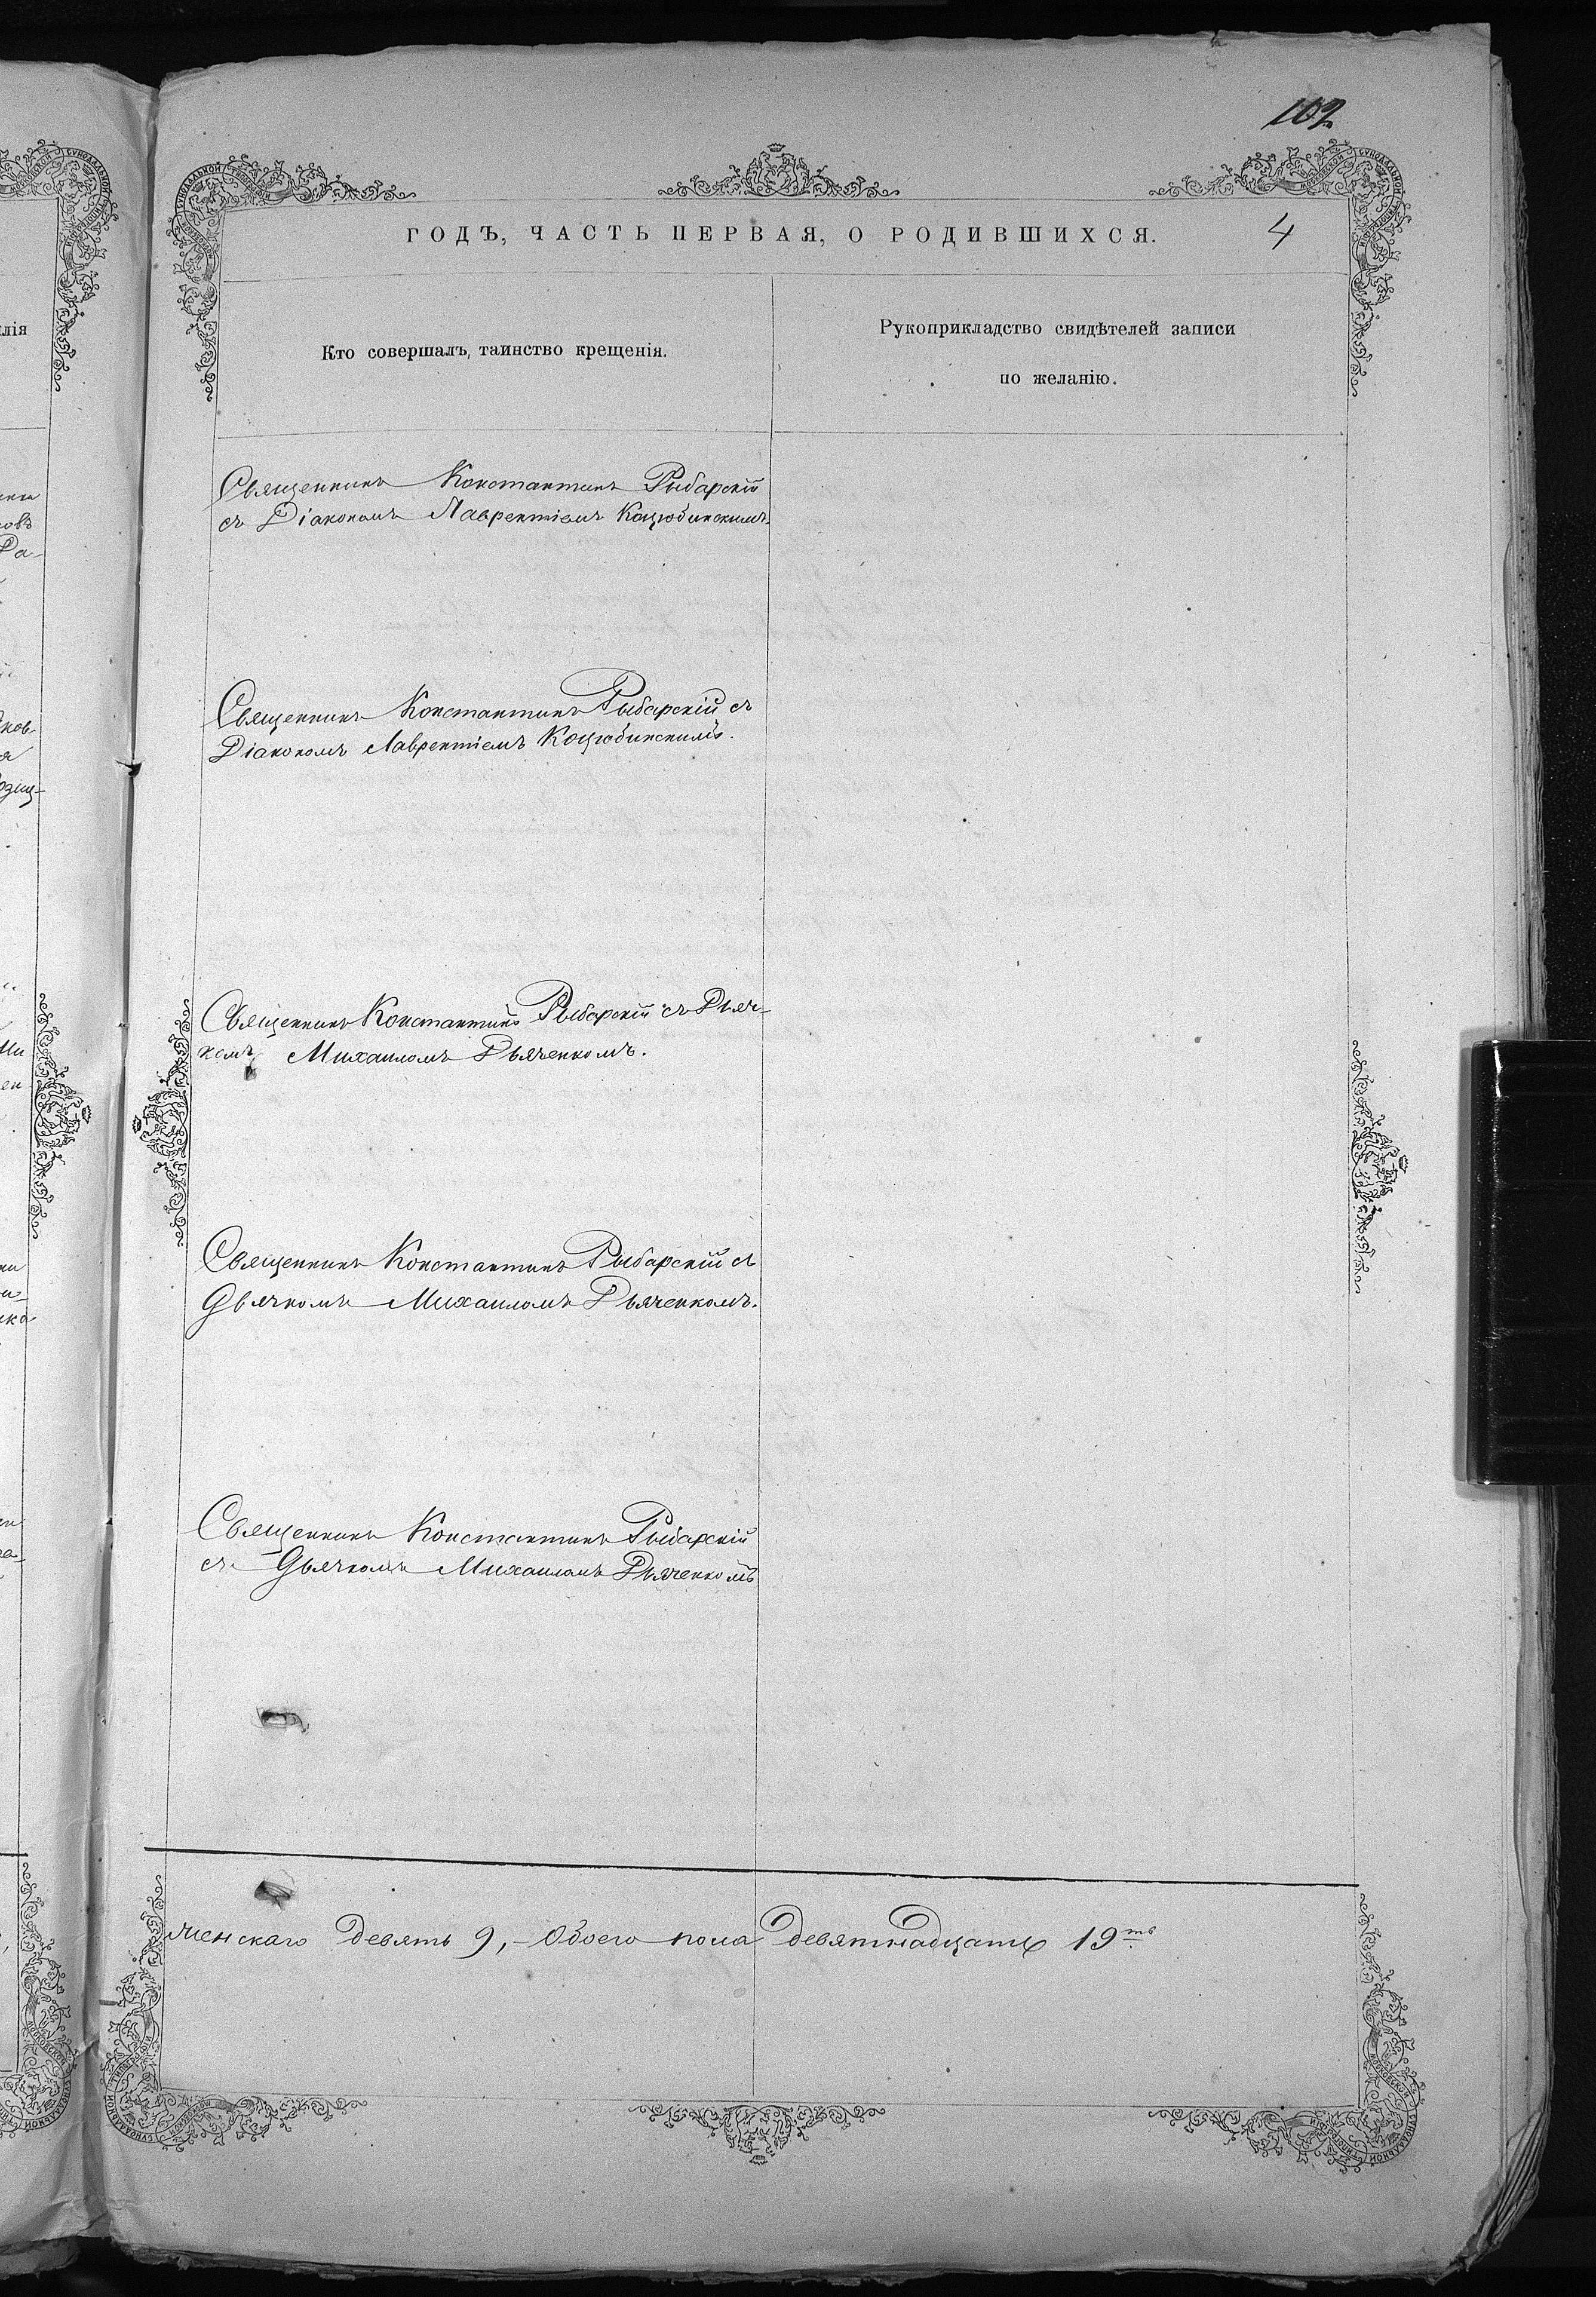 102
ГОДЪ, ЧАСТЬ ПЕРВАЯ, О РОДИВШИХСЯ.
4
Кто совершалъ, таинство крещенія.
Рукоприкладство свидѣтелей записи
по желанію.
Священникъ Константинъ Рыбарскій
съ Діакономъ Лаврентіемъ Коцюбинскимъ.
Священникъ Константинъ Рыбарскій съ
Діакономъ Лаврентіемъ Коцюбинскимъ.
Священникъ Константинъ Рыбарскій съ Дьяч-
комъ Михаиломъ Дьяченкомъ.
Священникъ Константинъ Рыбарскій съ
Дьячкомъ Михаиломъ Дьяченкомъ.
Священникъ Константинъ Рыбарскій
съ Дьячкомъ Михаиломъ Дьяченкомъ
женскаго девять 9, – Обоего пола девятнадцать 19ть